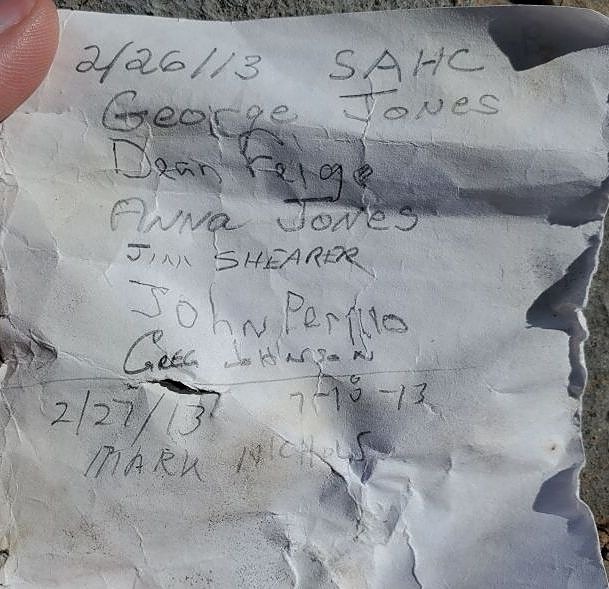 2/26/13 SAHC
George Jones
Dean Feige
ANNA JONES
JIM SHEARER
John Perillo
Greg Johnson
2/27/13 -13
MARK NICHOLS